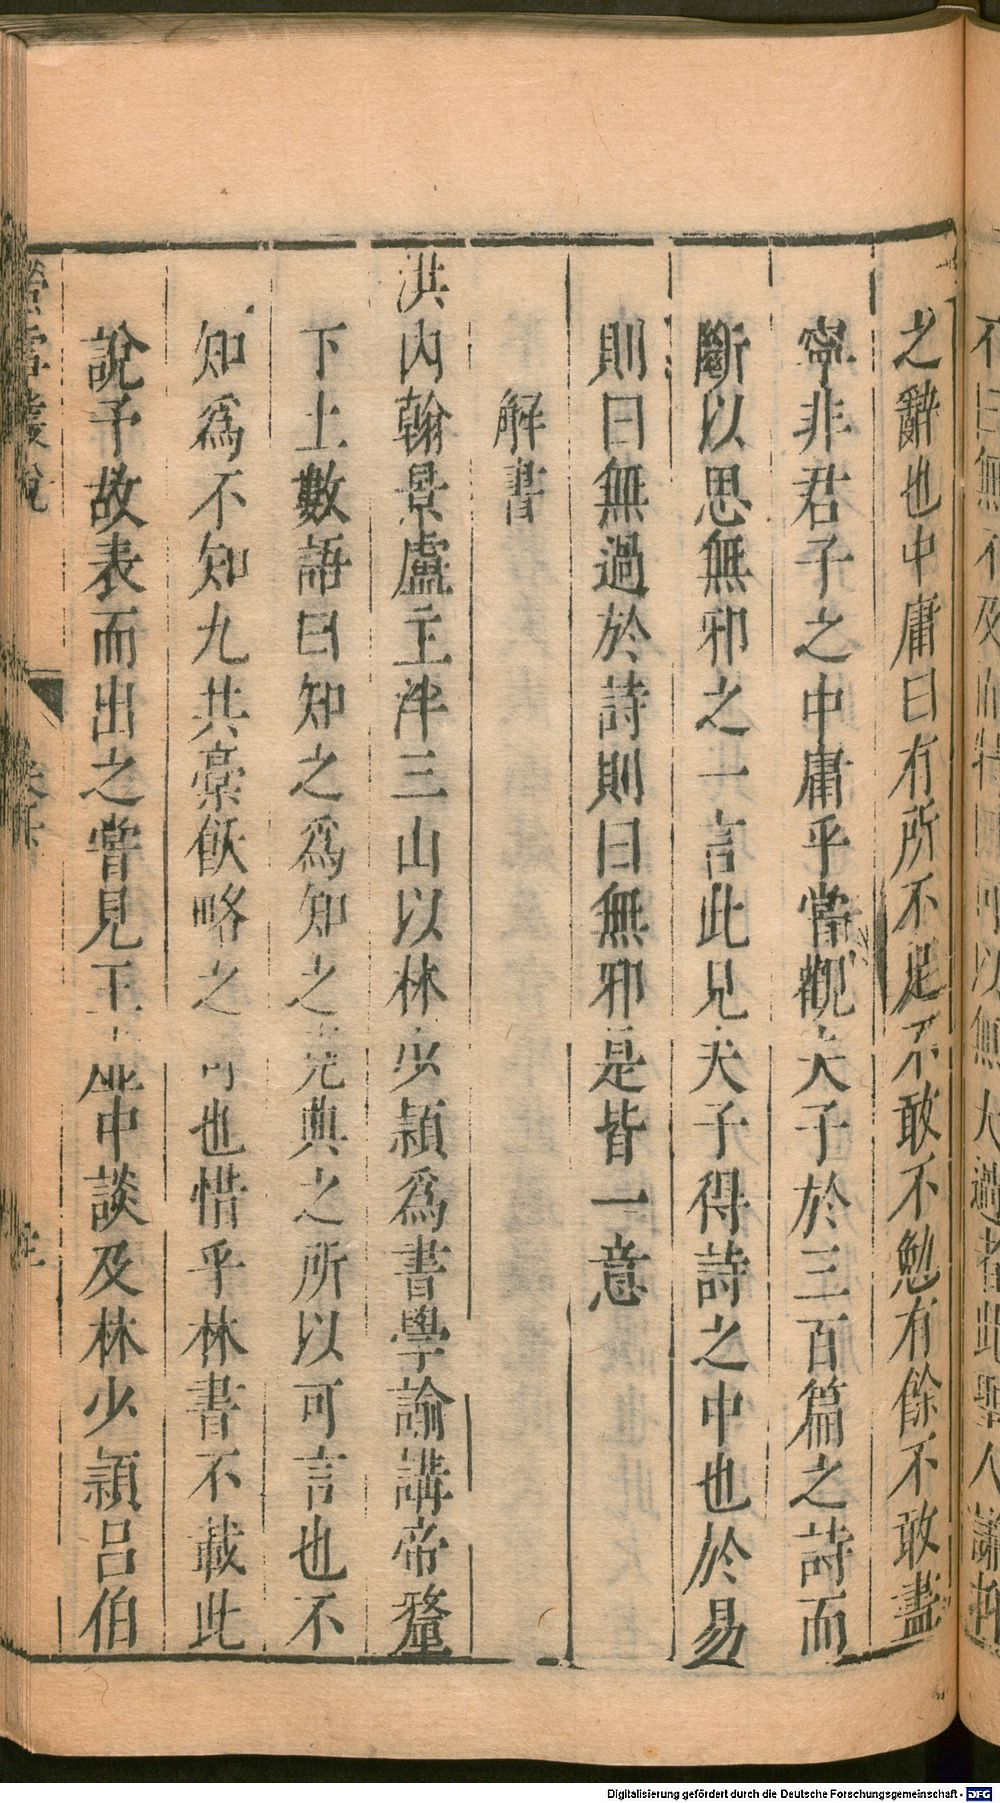 不曰無不及而特曰可以無大過者此聖人謙抑
之辭也中庸曰有所不足不敢不勉有餘不敢盡
寧非君子之中庸乎嘗觀夫子於三百篇之詩而
斷以思無邪之一言此見夫子得詩之中也於易
則曰無過於詩則曰無邪是皆一意
解書
洪内翰景盧主泮三山以林少穎爲書學諭講帝釐
下土數語曰知之爲知之堯典之所以可言也不
知爲不知九共稾飫略之可也惜乎林書不載此
說予故表而出之嘗見王 中談及林少穎呂伯
螢雪叢說
Digitalisierung gefördert durch die Deutsche Forschungsgemeinschaft - DFG